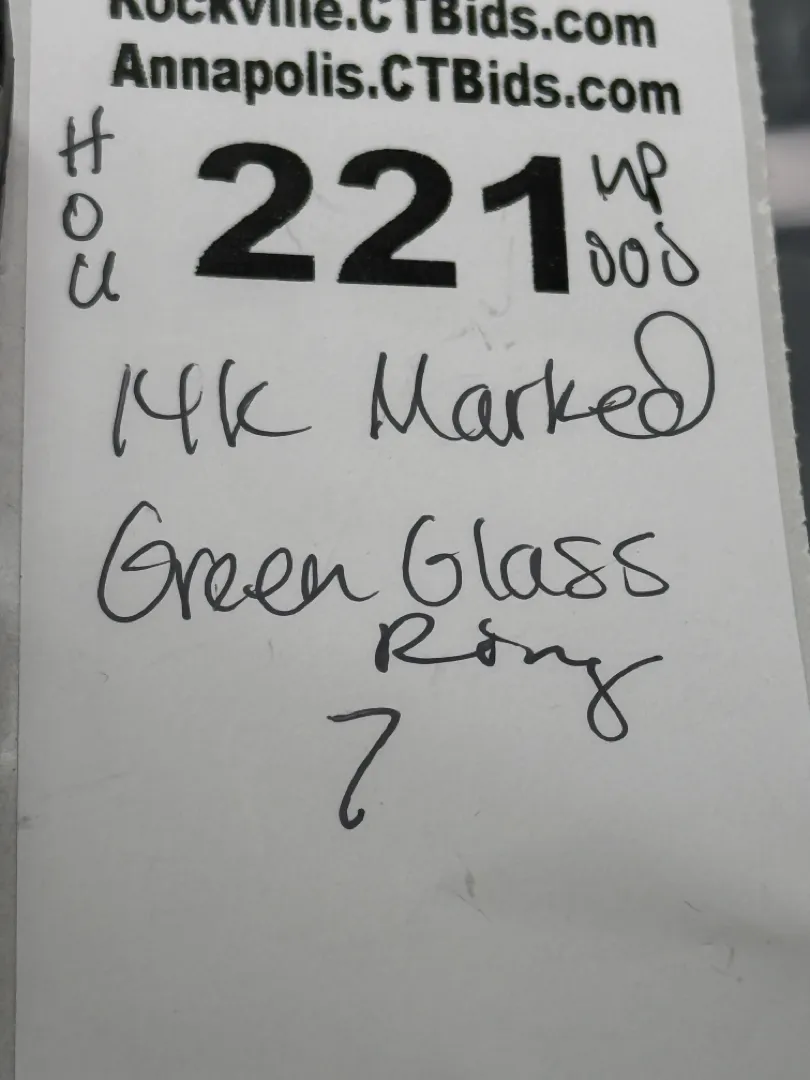 Rockville.CTBids.com
Annapolis.CTBids.com
HOU
221
14k Marked
Green Glass
Ring
7